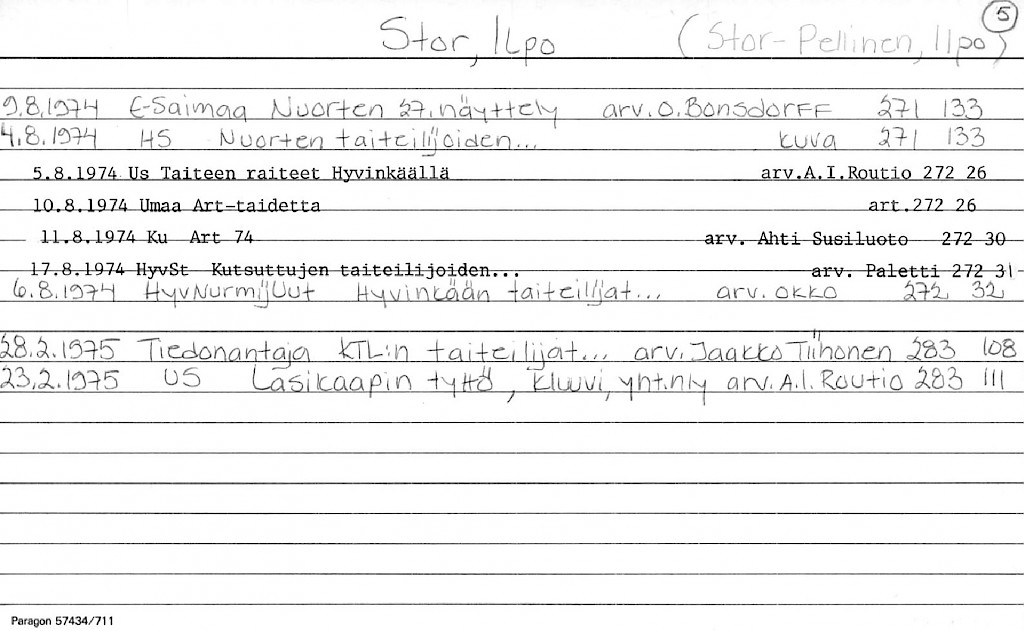 5
Stor, Ilpo (Stor-Pellinen, Ilpo)
9.8.1974 E-Saimaa Nuorten 27. näyttely arv. O. Bonsdorff 271 133
4.8.1974 HS Nuorten taiteilijoiden... kuva 271 133
5.8.1974 Us Taiteen raiteet Hyvinkäällä arv.A.I.Routio 272 26
10.8.1974 Umaa Art-taidetta art.272 26
11.8.1974 Ku Art 74 arv. Ahti Susiluoto 272 30
17.8.1974 HyvSt Kutsuttujen taiteilijoiden... arv. Paletti 272 31
6.8.1974 HyvNurmijUut Hyvinkään taiteilijat... arv. Okko 272 32
28.2.1975 Tiedonantaja KTL:n taiteilijat... arv. Jaakko Tiihonen 283 108
23.2.1975 US Lasikaapin tyttö, Kluuvi, yht.nly arv. A.I. Routio 283 111
Paragon 57434/711